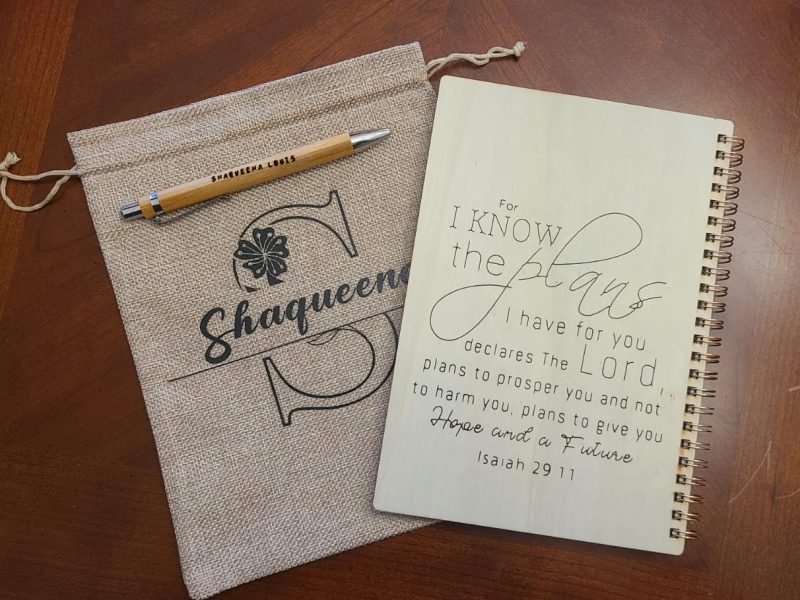 SHAQUEENA LOUIS
S
Shaqueena
For
I KNOW
the plans
I have for you
declares The Lord,
plans to prosper you and not
to harm you, plans to give you
Hope and a Future
Isaiah 29 11